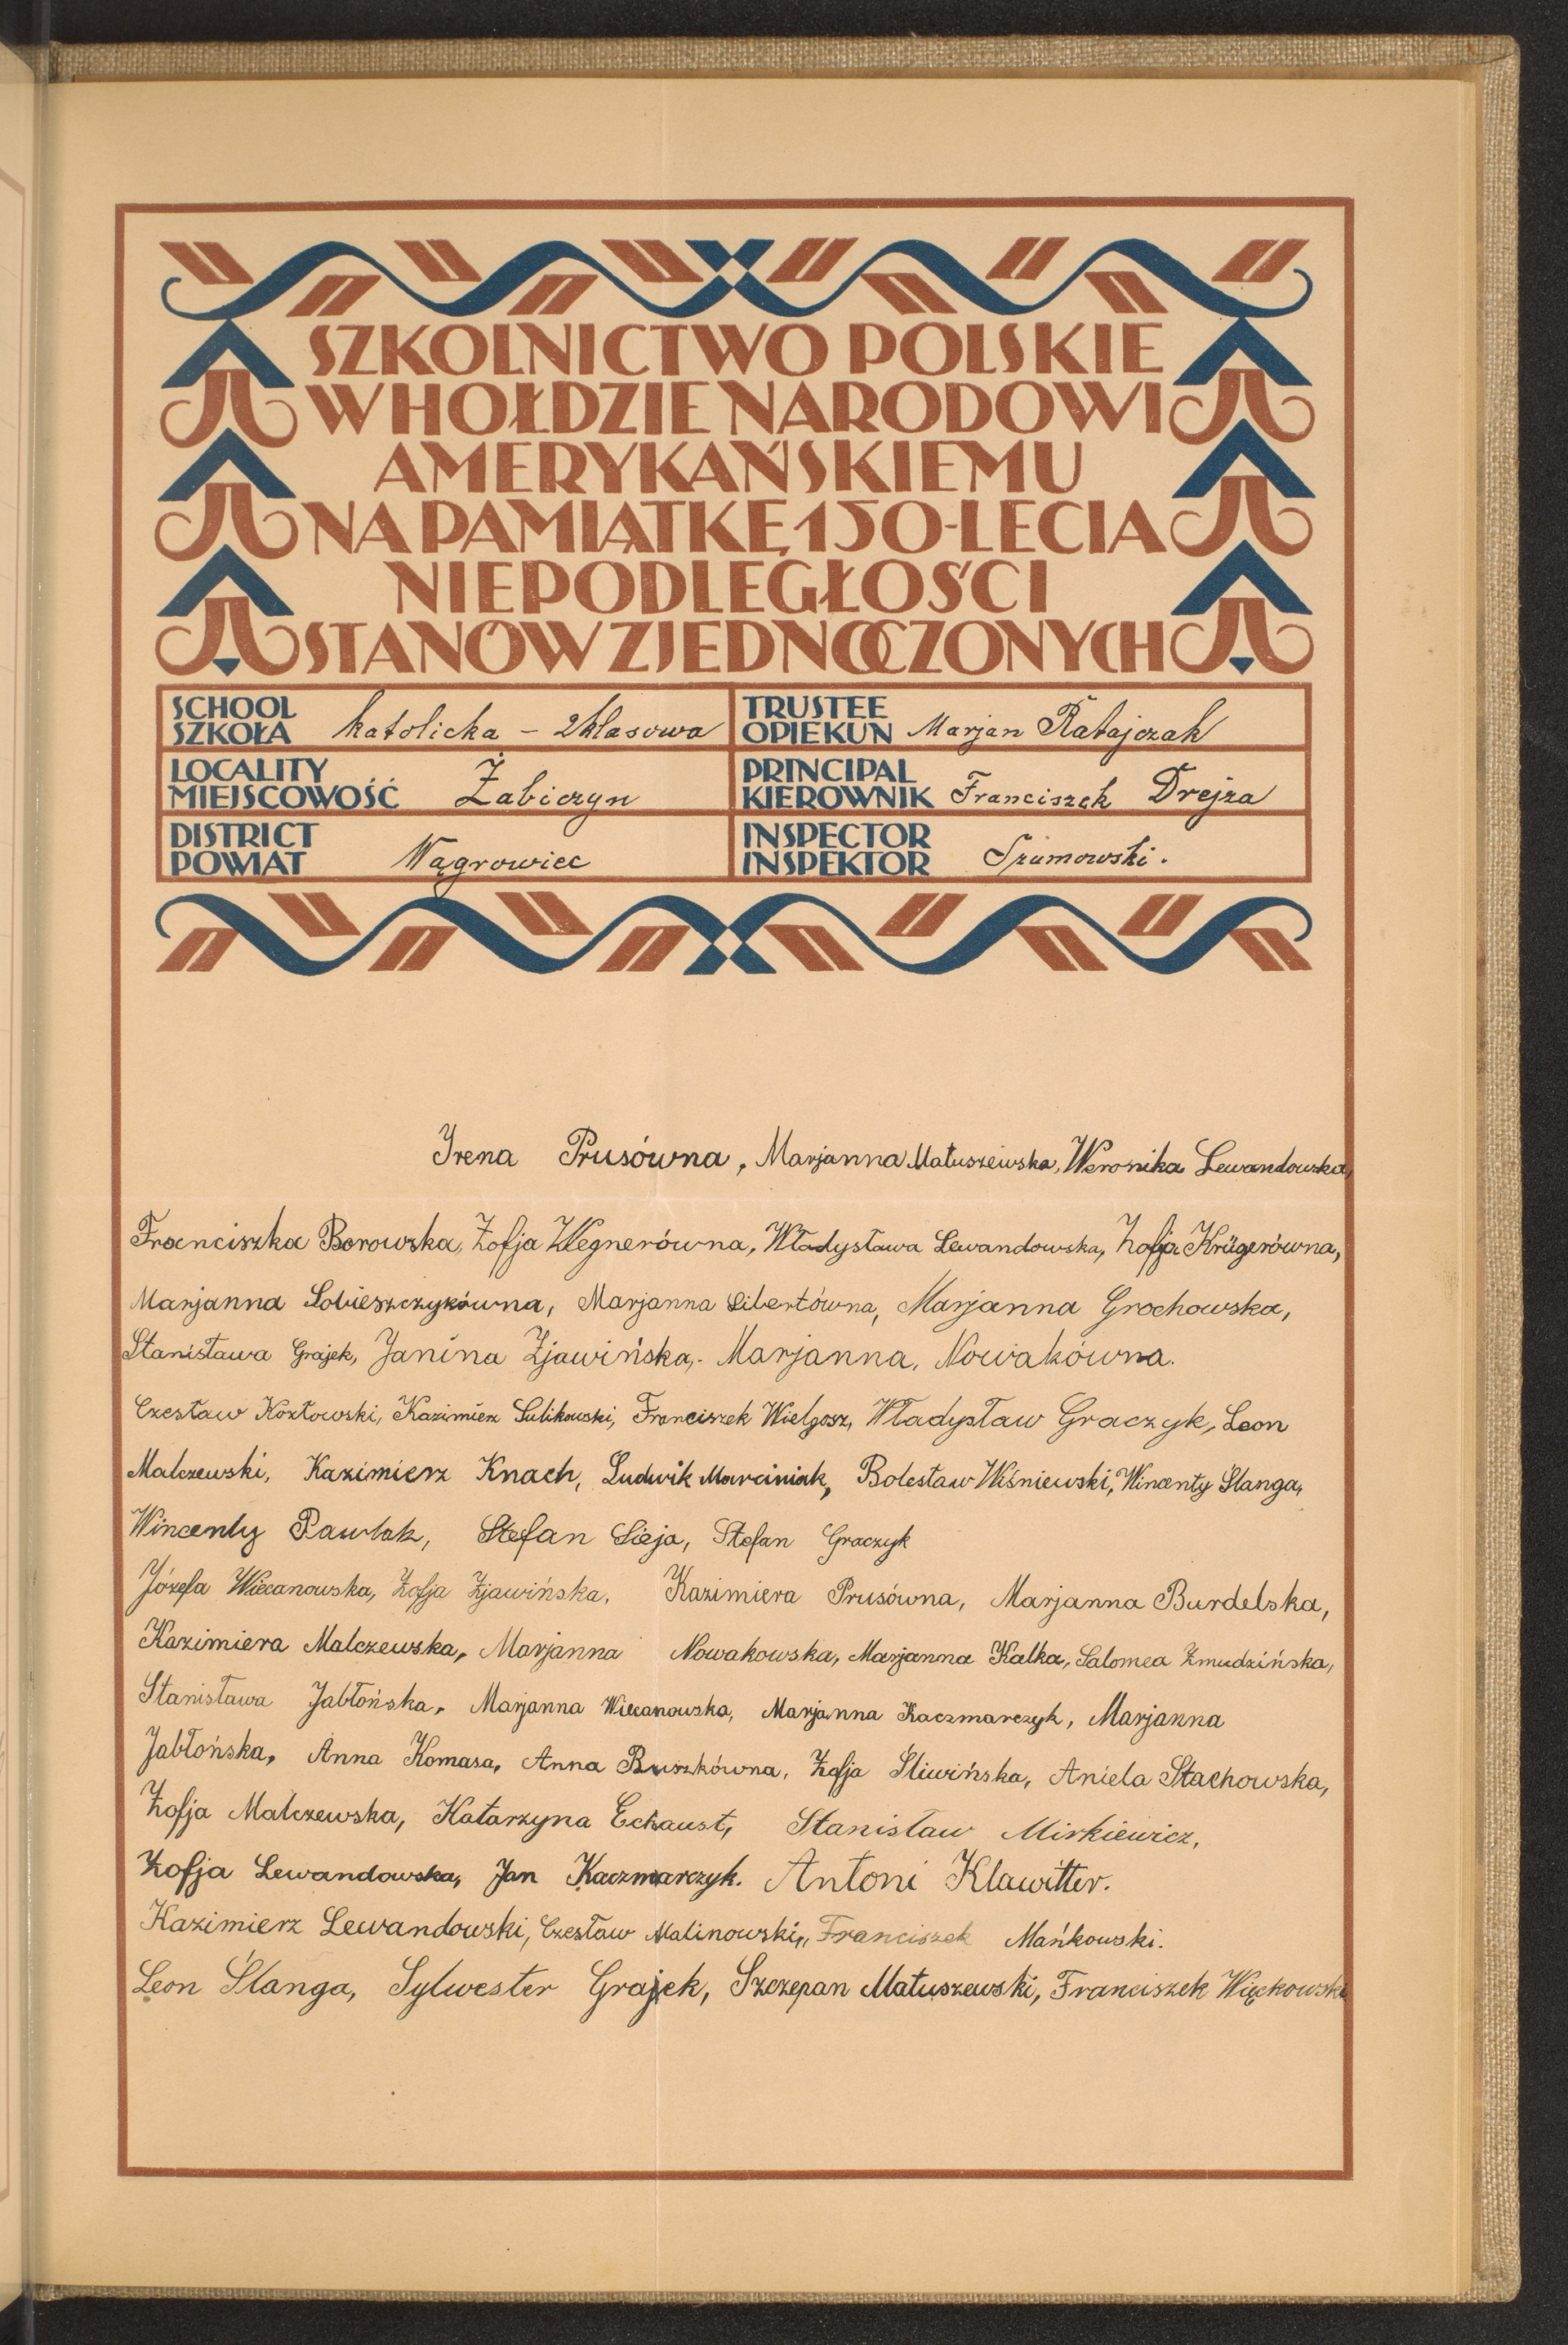 SZKOLNICTWO POLSKIE
W HOŁDZIE NARODOWI
AMERYKAŃSKIEMU
NA PAMIĄTKĘ 150-LECIA
NIEPODLEGŁOŚCI
STANÓW ZJEDNOCZONYCH
SCHOOL
SZKOŁA katolicka - 2klasowa
TRUSTEE
OPIEKUN Marjan Ratajczak
LOCALITY
MIEJSCOWOŚĆ Żabiczyn
PRINCIPAL
KIEROWNIK Franciszek Drejza
DISTRICT
POWIAT Wągrowiec
INSPECTOR
INSPEKTOR Szumowski.
Irena Prusówna, Marjanna Matuszewska, Weronika Lewandowska,
Franciszka Borowska, Zofja Wegnerówna, Władysława Lewandowska, Zofja Krügerówna,
Marjanna Sobieszczykówna, Marjanna Libertówna, Marjanna Grochowska,
Stanisława Grajek, Janina Zjawińska,- Marjanna, Nowakówna.
Czesław Kozłowski, Kazimierz Sulikowski, Franciszek Wielgosz, Władysław Graczyk, Leon
Malczewski, Kazimierz Knach, Ludwik Marciniak, Bolesław Wiśniewski, Wincenty Slanga,
Wincenty Pawlak, Stefan Sieja, Stefan Graczyk
Józefa Wiecanowska, Zofja Zjawińska, Kazimiera Prusówna, Marjanna Burdelska,
Kazimiera Malczewska, Marjanna Nowakowska, Marjanna Kalka, Salomea Zmudzińska,
Stanisława Jabłońska, Marjanna Wiecanowska, Marjanna Kaczmarczyk, Marjanna
Jabłońska, Anna Komasa, Anna Buszkówna, Zofja Śliwińska, Aniela Stachowska,
Zofja Malczewska, Katarzyna Eckaust, Stanisław Mirkiewicz,
Zofja Lewandowska, Jan Kaczmarczyk. Antoni Klawitter.
Kazimierz Lewandowski, Czesław Malinowski,, Franciszek Mańkowski.
Leon Ślanga, Sylwester Grajek, Szczepan Matuszewski, Franciszek Więckowski